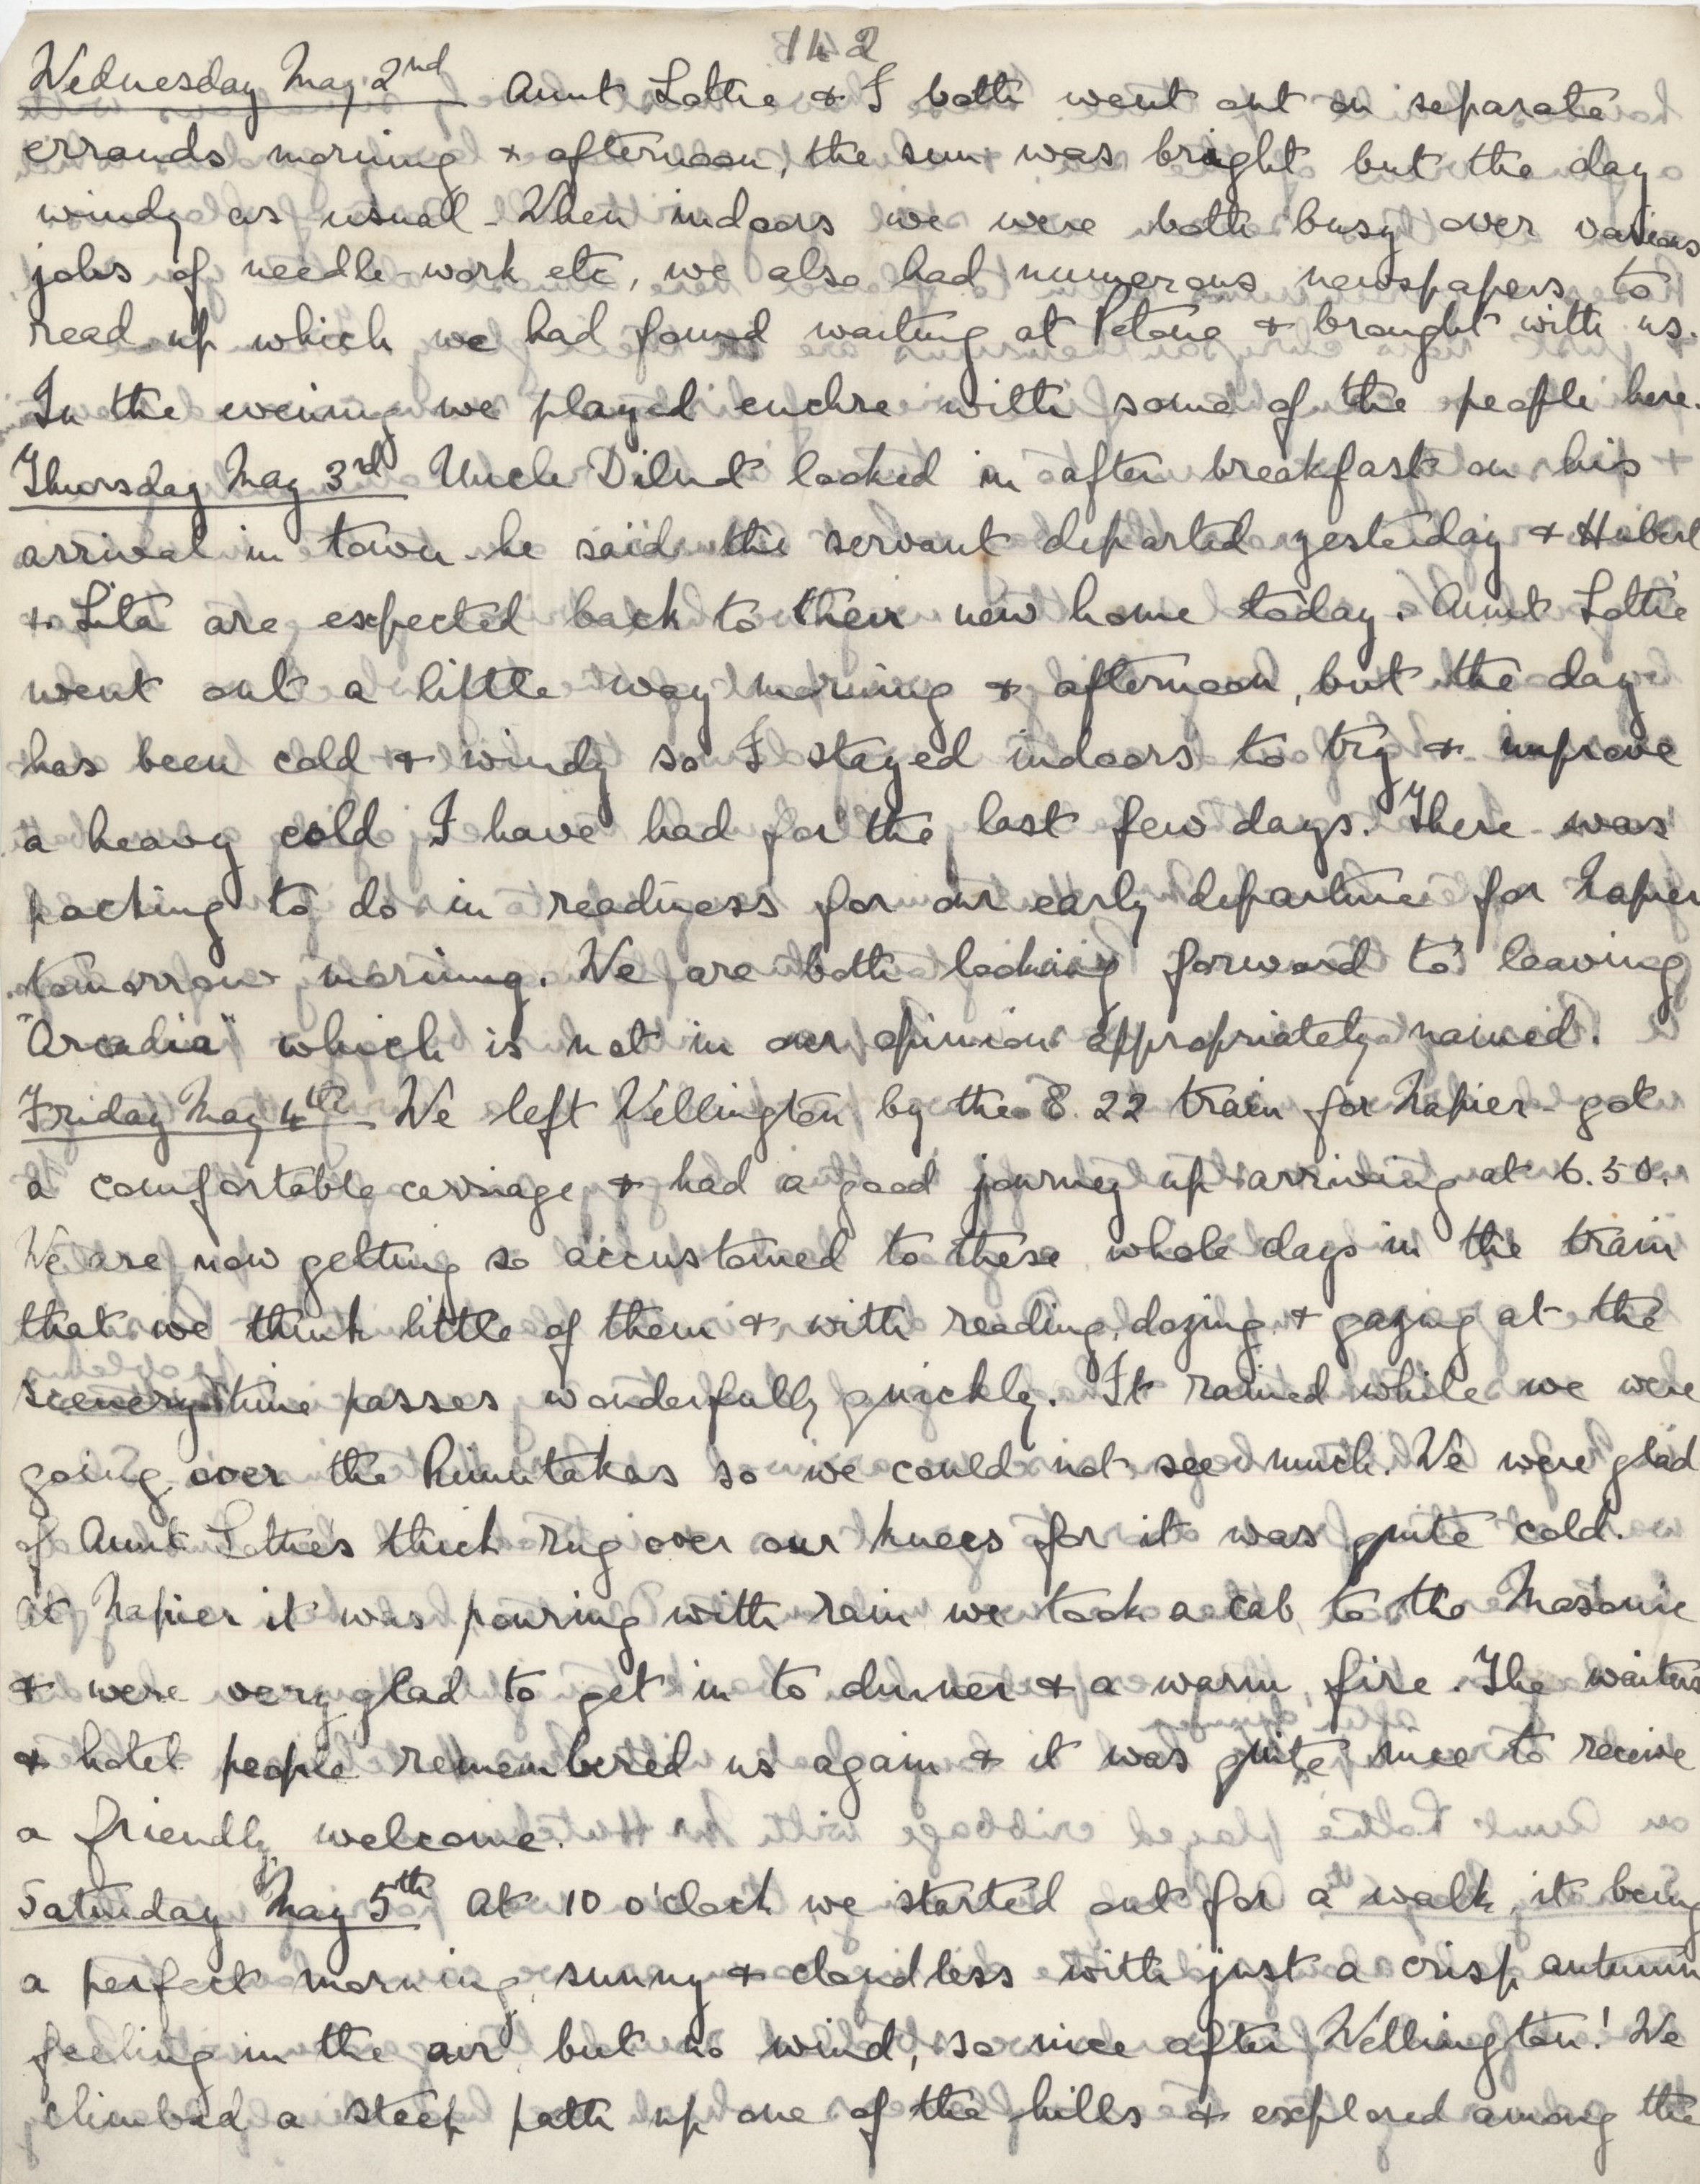 142
Wednesday May 2nd Aunt Lottie & I both went out on separate
errands morning & afternoon, the sun was bright but the day
windy as usual - When indoors we were both busy over various
jobs of needle-work etc, we also had numerous newspapers to
read up which we had found waiting at Petone & brought with us.
In the evening we played euchre with some of the people here.
Thursday May 3rd Uncle looked in after breakfast on his
arrival in town - he said the servant departed yesterday & Hubert
& Lita are expected back to their new home today. Aunt Lottie
went out a little way morning & afternoon, but the day
has been cold & windy so I stayed indoors to try & improve
a heavy cold I have had for the last few days. There was
packing to do in readiness for our early departure for Napier
tomorrow morning. We are both looking forward to leaving
"Arcadia" which is not in our opinion appropriately named.
Friday May 4th We left Wellington by the 8.22 train for Napier - got
a comfortable carriage & had a good journey up arriving at 6.50.
We are now getting so accustomed to these whole days in the train
that we think little of them & with reading, dozing & gazing at the
scenery time passes wonderfully quickly. It rained while we were
going over the Rimutakas so we could not see much. We were glad
of Aunt Lottie's thick rug over our knees for it was quite cold.
At Napier it was pouring with rain we took a cab to the Masonic
& were very glad to get in to dinner & a warm fire. The waiters
& hotel people remembered us again & it was quite nice to receive
a friendly welcome.
Saturday May 5th At 10 o'clock we started out for a walk, it being
a perfect morning, sunny & cloudless with just a crisp autumn
feeling in the air, but no wind, so nice after Wellington! We
climbed a steep path up one of the hills & explored among the